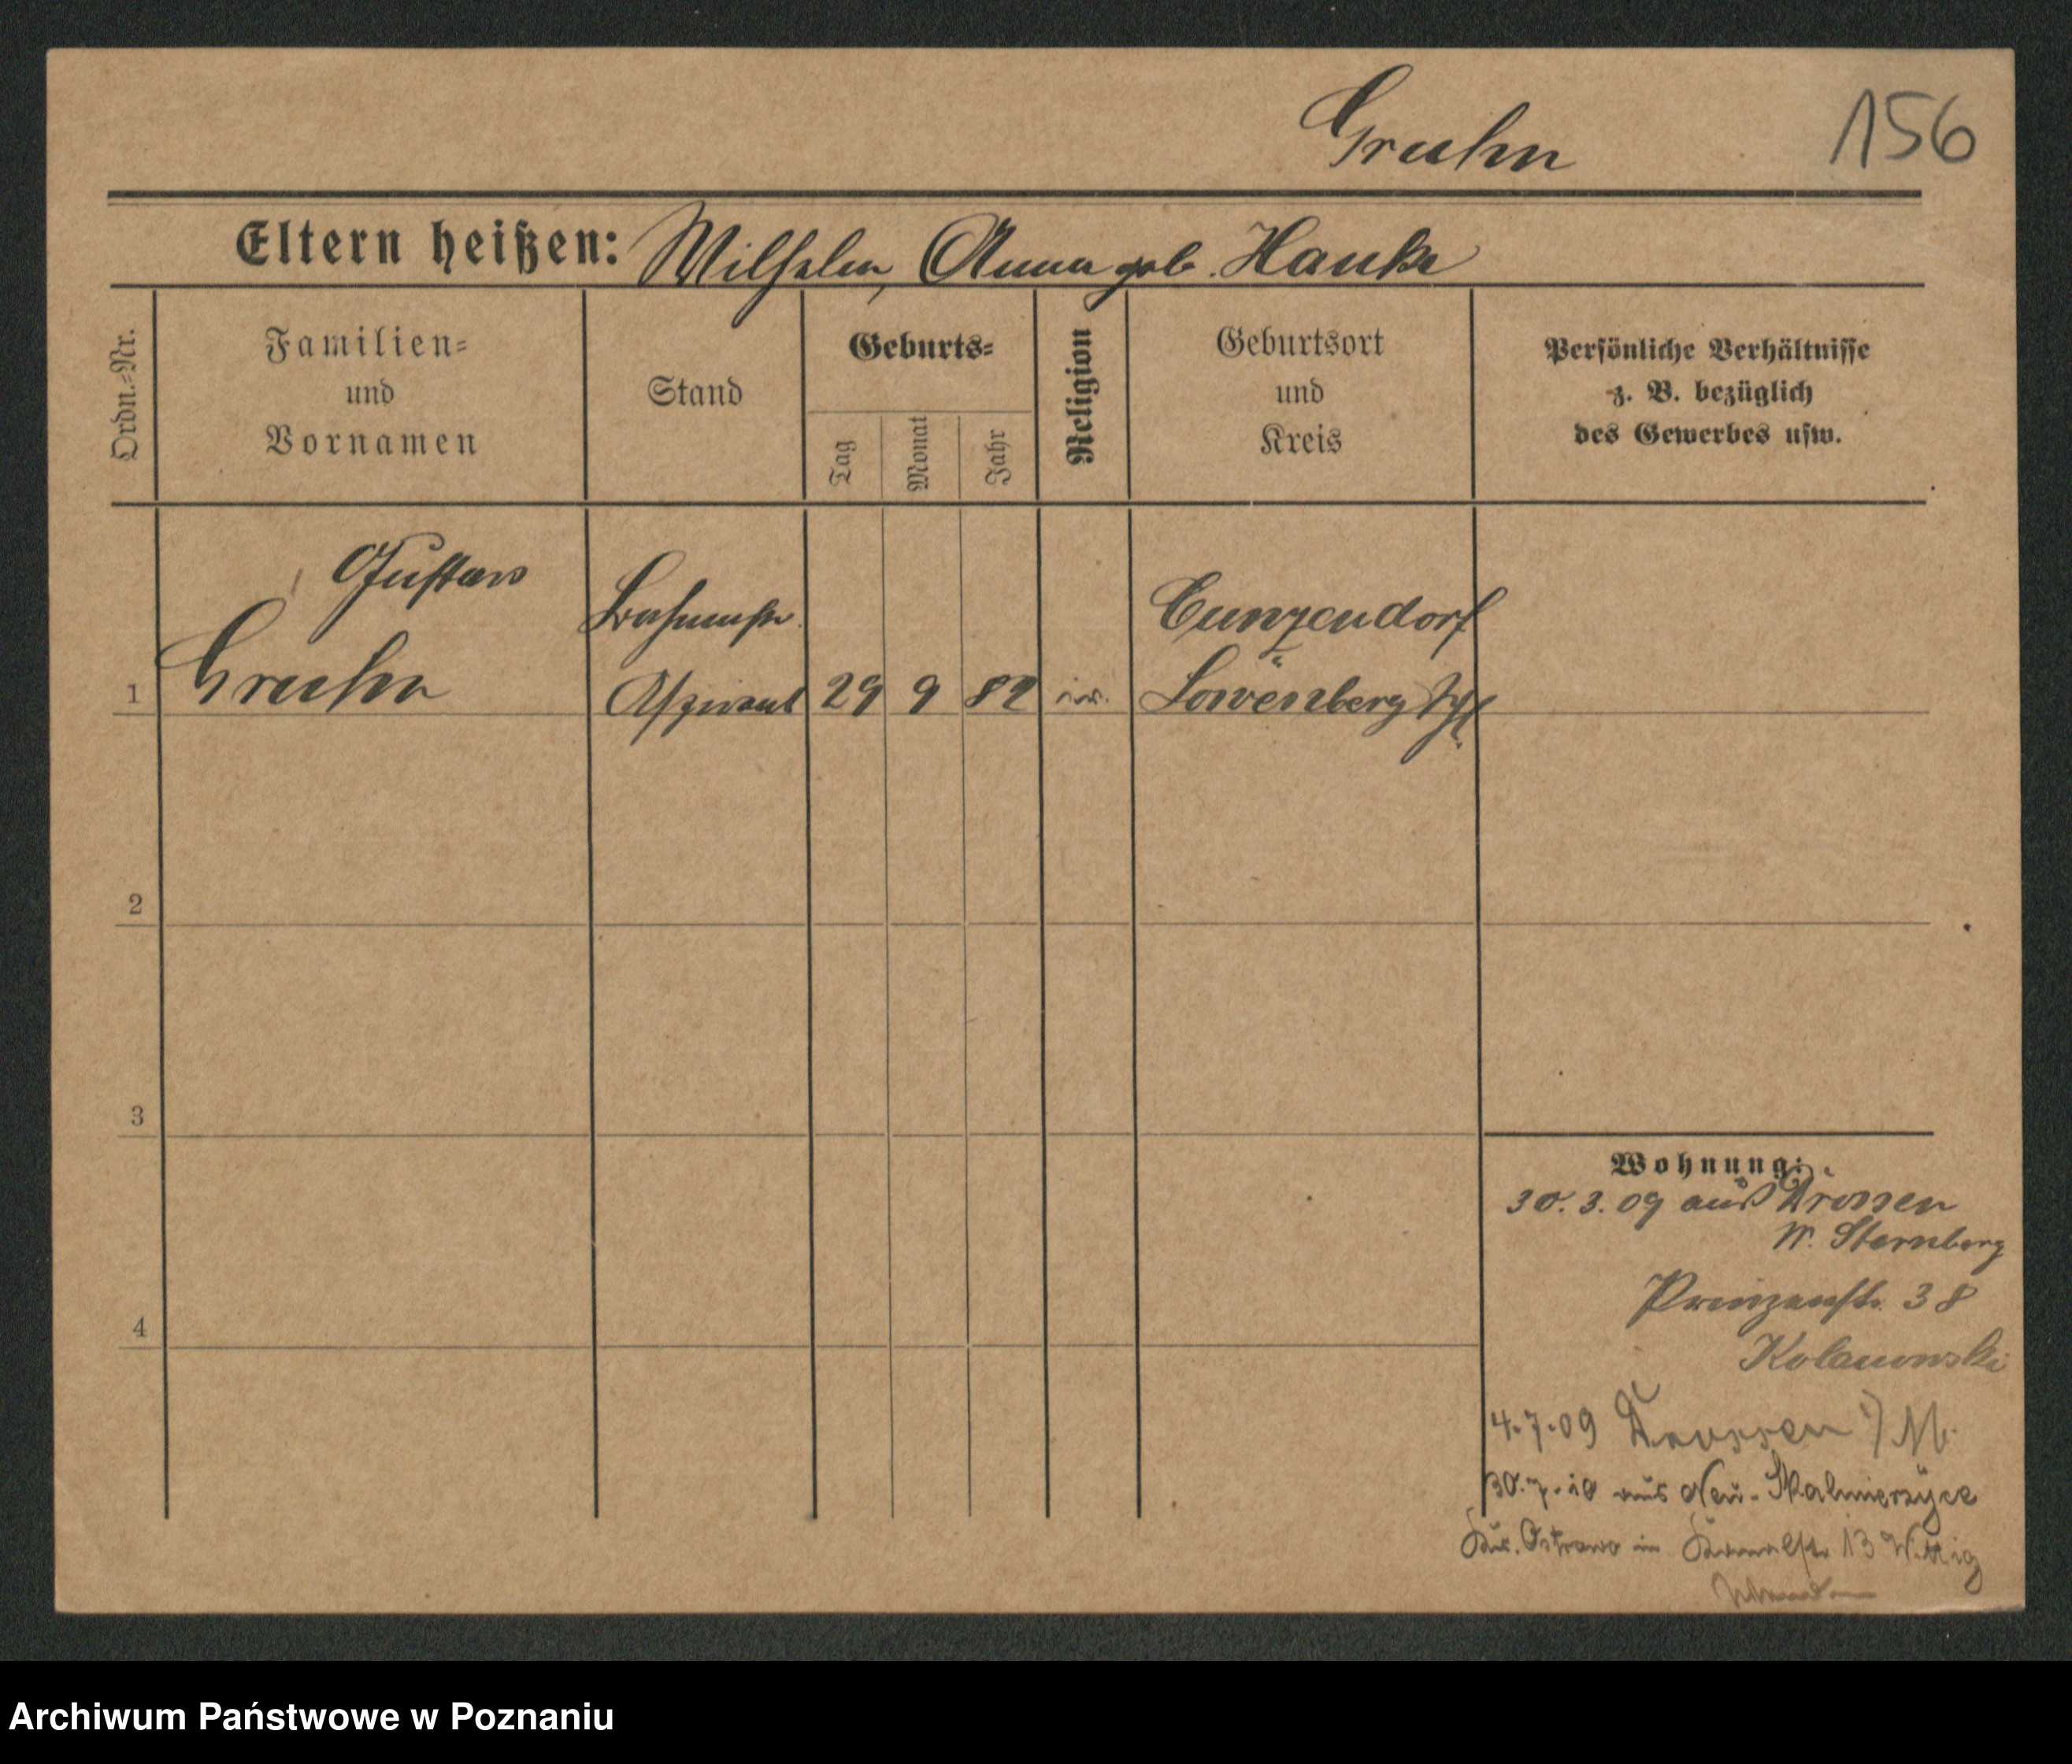 Gruhn 156
Eltern heißen: Wilhelm, Anna geb. Hanke
Ordn.=Nr.
Familien=
und
Vornamen
Stand
Geburts=
Tag
Monat
Jahr
Religion
Geburtsort
und
Kreis
Persönliche Verhältnisse
z. B. bezüglich
des Gewerbes usw.
Gustav
Gruhn
Aspirant
1
29 9 82
Cunzendorf
Löwenberg Schl
2
3
4
Wohnung:
30.3.09 aus Drossen
W. Sternberg
Prinzenstr. 38
Kolanowski
4.7.09 Drossen
30.7.10 aus Neu-Skalmierzyce
Ostrowo in Kanalstr 13 Wittig
Archiwum Państwowe w Poznaniu